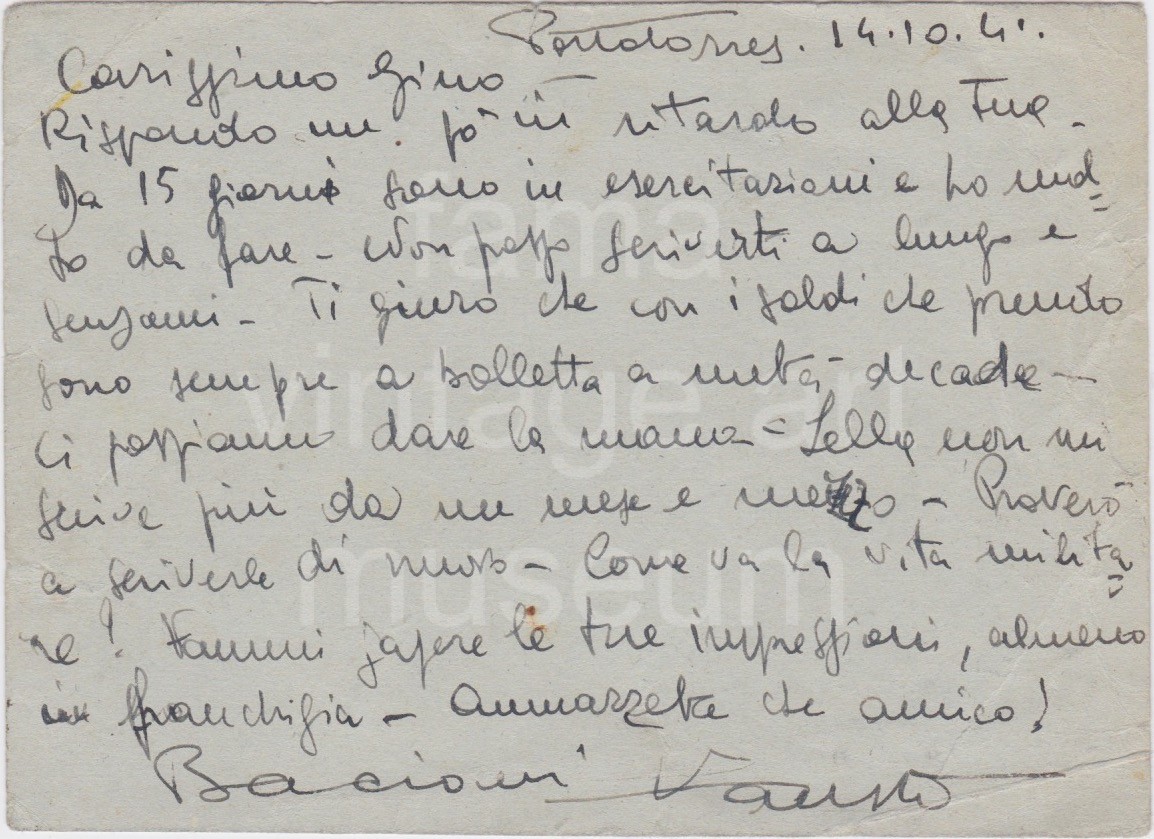 14.10.41.
Carissimo Gino
Rispondo un pò in ritardo alla tua -
Da 15 giorni sono in esercitazioni e ho mol=
to da fare - Non posso scriverti a lungo e
scusami - Ti giuro che con i soldi che prendo
sono sempre a bolletta a metà decade -
Ci possiamo dare la mano - Lella non mi
scrive più da un mese e mezzo - Proverò
a scriverle di nuovo - Come va la vita milita=
re! Fammi sapere le tue impressioni, almeno
in franchigia - Ammazzeta che amico!
Bacioni Fausto
fama
vintage art
museum